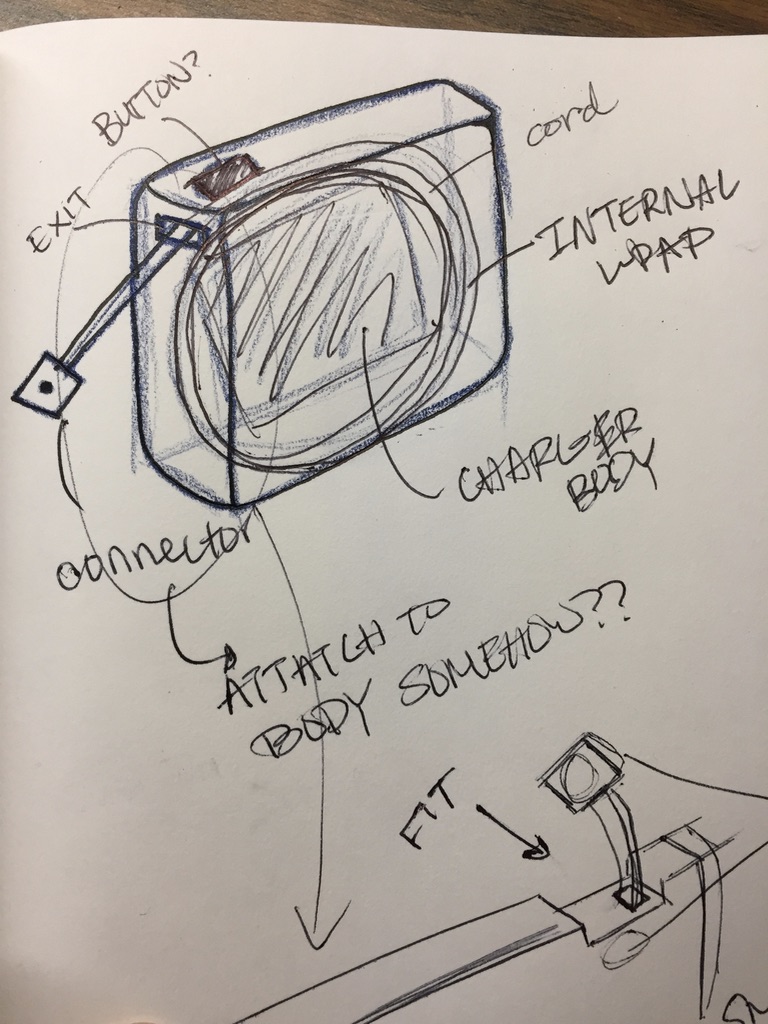 BUTTON?
cord
EXIT
INTERNAL
WRAP
CHARGER
BODY
connector
ATTATCH TO
BODY SOMEHOW??
FIT